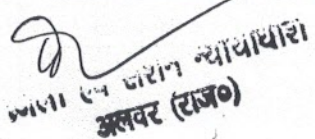 जिला एवं सेशन न्यायाधीश
अलवर (राज०)